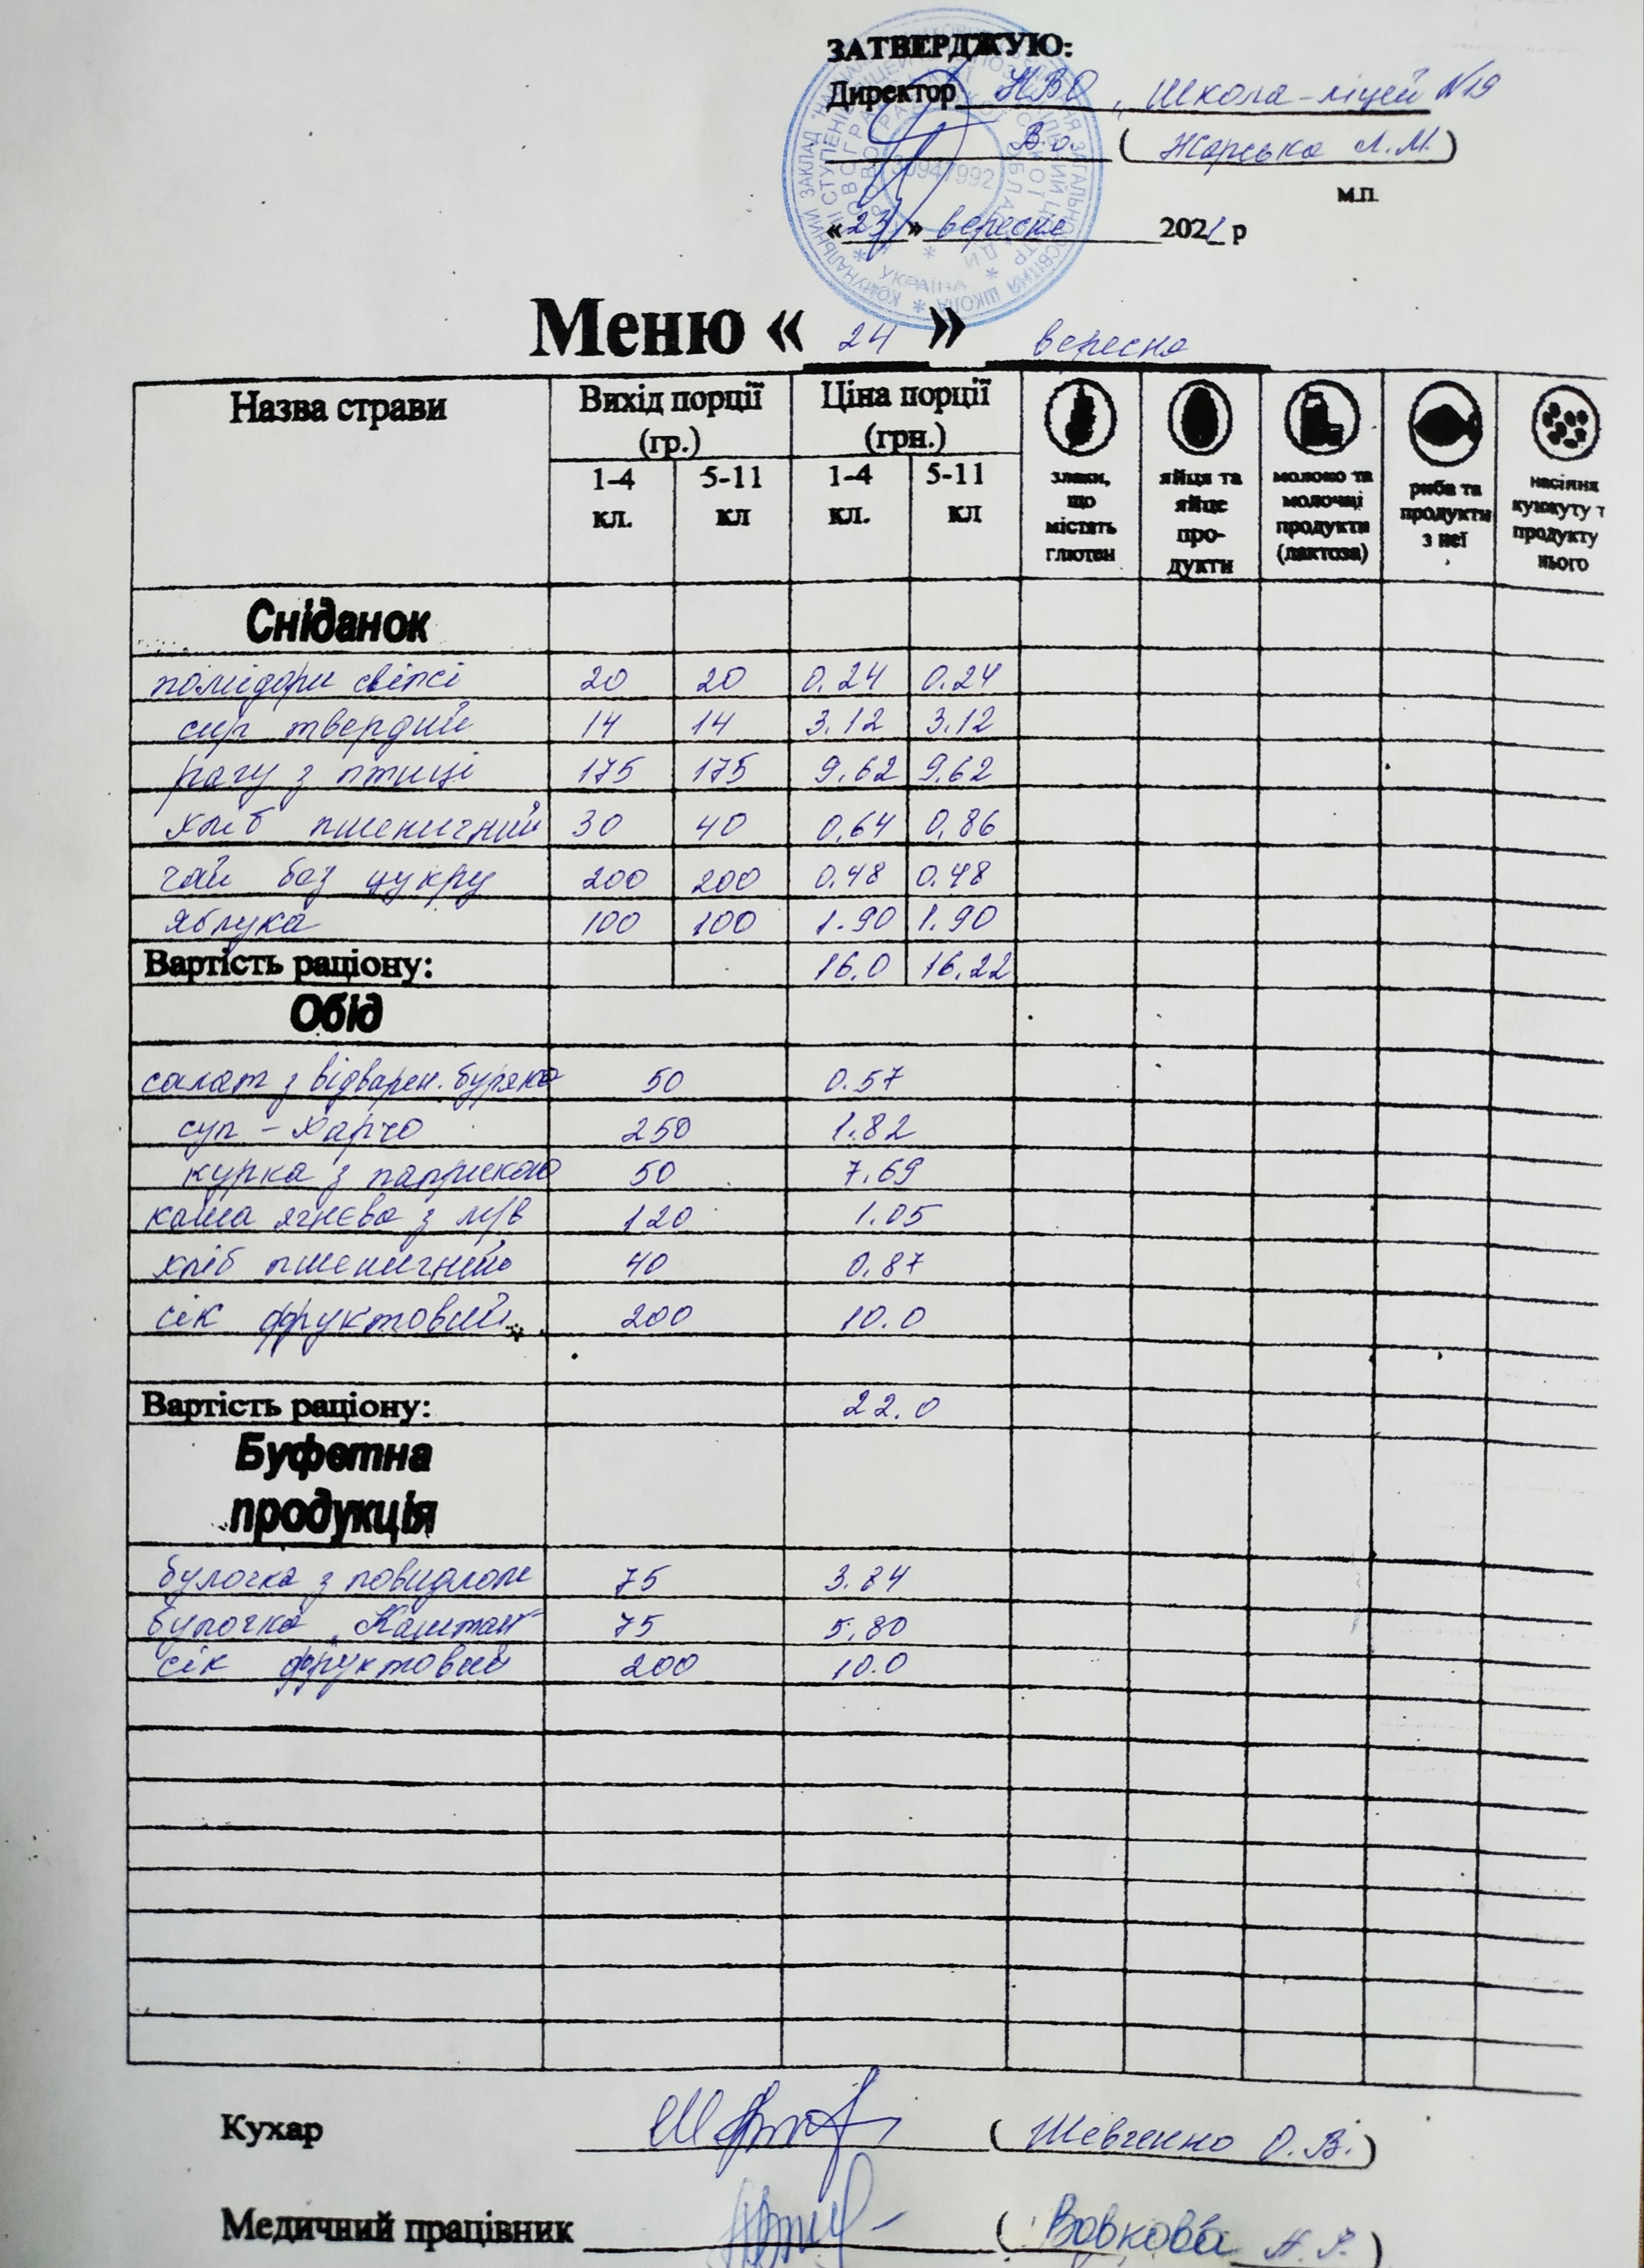 ЗАТВЕРДЖУЮ:
Директор НВО „Школа-ліцей №19
В.о. (Жарська Л.М.)
М.П.
«23» вересня 2021 р
Меню « 24 » вересня
Назва страви Вихід порції (гр.) Ціна порції (грн.) злаки, що містять глютен яйця та яйце про-дукти молоко та молочні продукти (лактоза) риба та продукти з неї насіння кунжуту т продукту нього
1-4 кл. 5-11 кл 1-4 кл. 5-11 кл
Сніданок
помідори свіжі 20 20 0.24 0.24
сир твердий 14 14 3.12 3.12
рагу з птиці 175 175 9.62 9.62
хліб пшеничний 30 40 0,64 0,86
чай без цукру 200 200 0.48 0.48
яблука 100 100 1.90 1.90
Вартість раціону: 16.0 16.22
Обід
салат з відварен. буряка 50 0.57
суп - харчо 250 1.82
курка з паприкою 50 7.69
каша ячнєва з м/в 120 1.05
хліб пшеничний 40 0,87
сік фруктовий 200 10.0
Вартість раціону: 22.0
Буфетна
продукція
булочка з повидлом 75 3.84
булочка „Каштан" 75 5,80
сік фруктовий 200 10.0
Кухар (Шевченко О.В.)
Медичний працівник (Вовкова)
30941992
УКРАЇНА